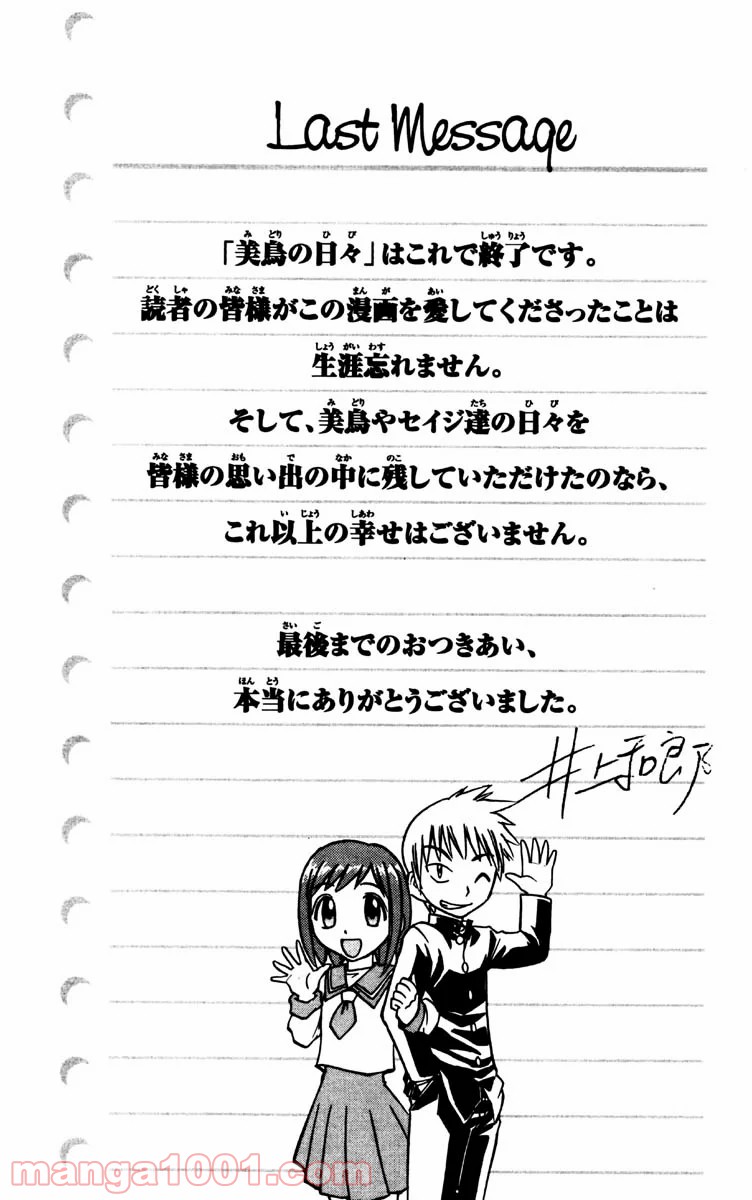 Last Message
「美鳥の日々」はこれで終了です。
読者の皆様がこの漫画を愛してくださったことは
生涯忘れません。
そして、美鳥やセイジ達の日々を
皆様の思い出の中に残していただけたのなら、
これ以上の幸せはございません。
最後までのおつきあい、
本当にありがとうございました。
井上和郎
manga1001.com